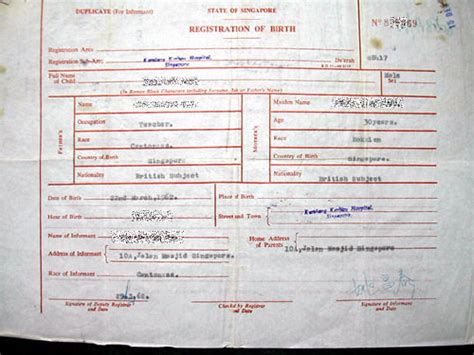 DUPLICATE (For Informant) STATE OF SINGAPORE
REGISTRATION OF BIRTH Nº
Registration Area
Registration Kandang Kerbau Hospital, Singapore. Da'erah
Full Name of Child Male Sex
(In Roman Block Characters including Surname, Seh or Father's Name)
Name Maiden Name
Occupation Teacher. Age 30years.
Father's Race Cantonese. Mother's Race Hokkien
Country of Birth Singapore Country of Birth Singapore.
Nationality British Subject Nationality British Subject
Date of Birth 22nd March, 1962. Place of Birth
Hour of Birth Street and Town Kandang Kerbau Hospital, Singapore.
Name of Informant Home Address of Parents 10A, Jalan Masjid Singapore
Address of Informant 10A, Jalan Masjid Singapore.
Race of Informant Cantonese.
Signature of Deputy Registrar and Date Checked by Registrar and Date Signature of Informant and Date